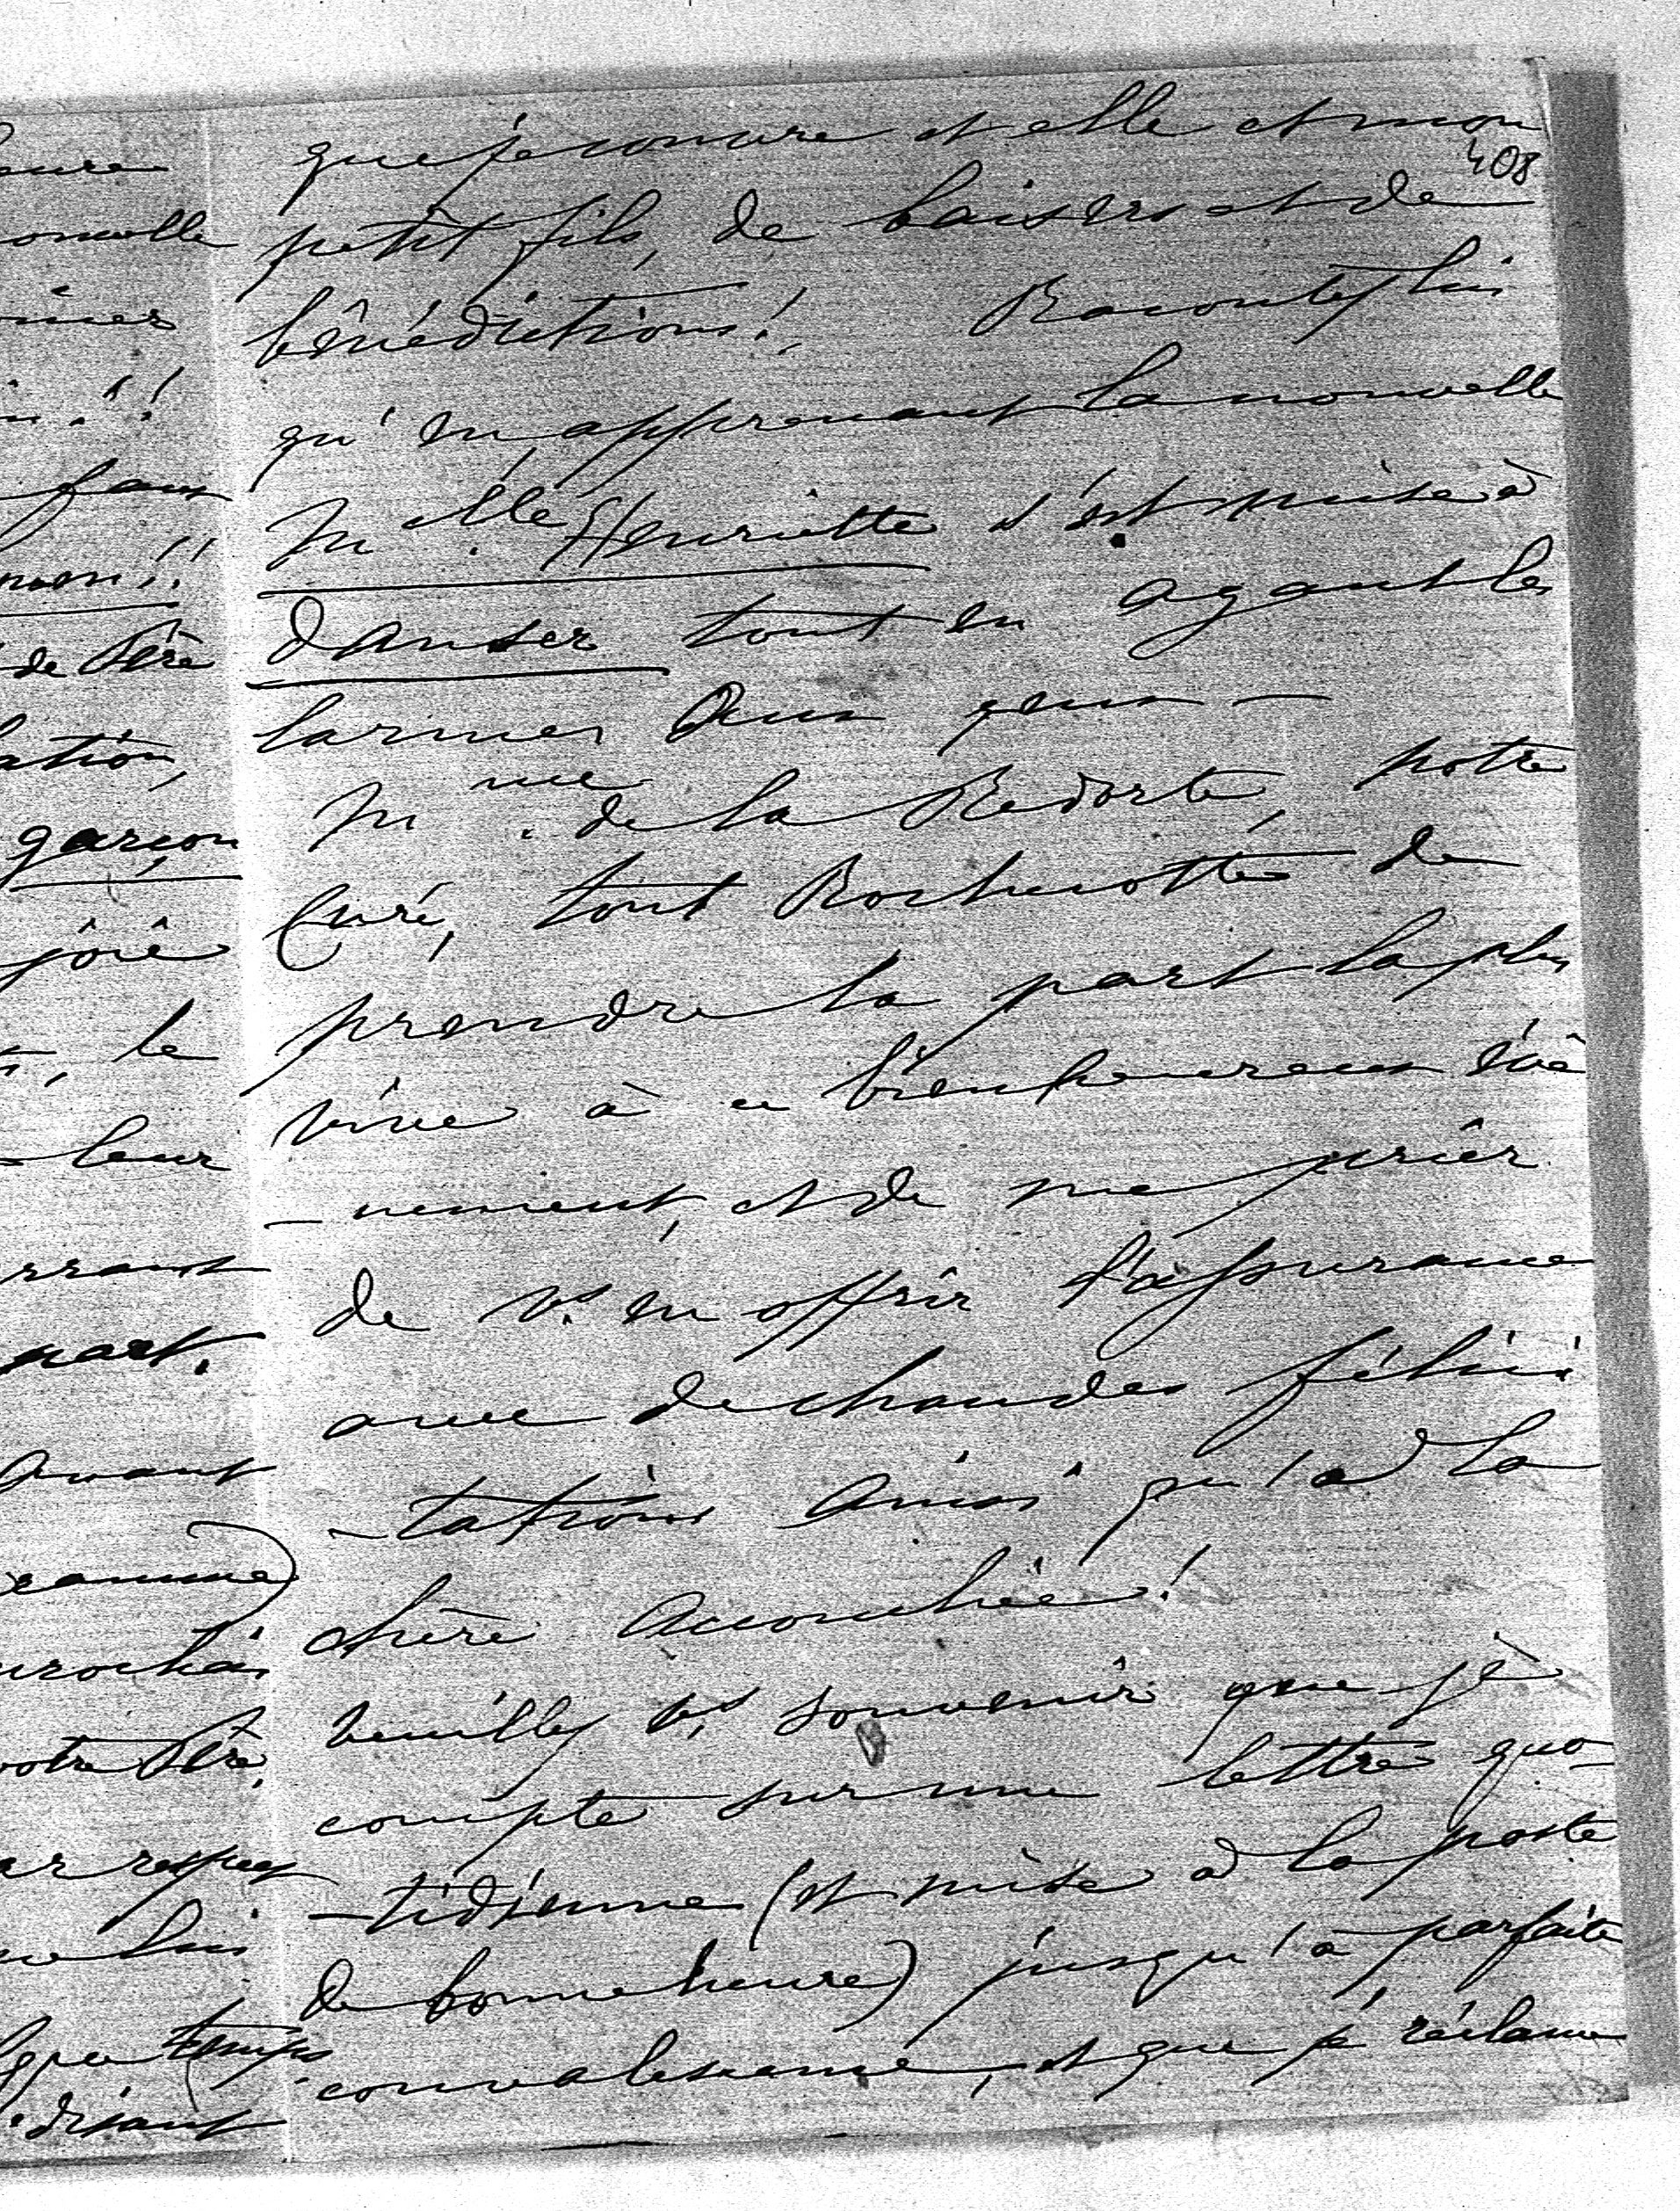 que je couvre et elle et mon
408
petit fils, de baisers et de
bénédictions! Racontez lui
qu'en apprenant la nouvelle
Melle. Henriette s'est mise à
danser tout en ayant les
larmes aux yeux —
Mme. de la Redorte, notre
Curé, tout Rochecotte de
prendre la part la plus
vive à ce bienheureux évè
-nement, et de me prier
de vs. en offrir l'assurance
avec de chaudes félici
-tations ainsi qu'à la
chère accouchée!
Veuillez vs souvenir que je
compte sur une lettre quo-
-tidienne (et mise à la poste
de bonne heure) jusqu'à parfaite
convalescence, et que je réclame
onvelle
faux
mon!!
de Père
lation,
garçon
joie
, le
leur
part.
avant
votre Père,
lui
temps
disant